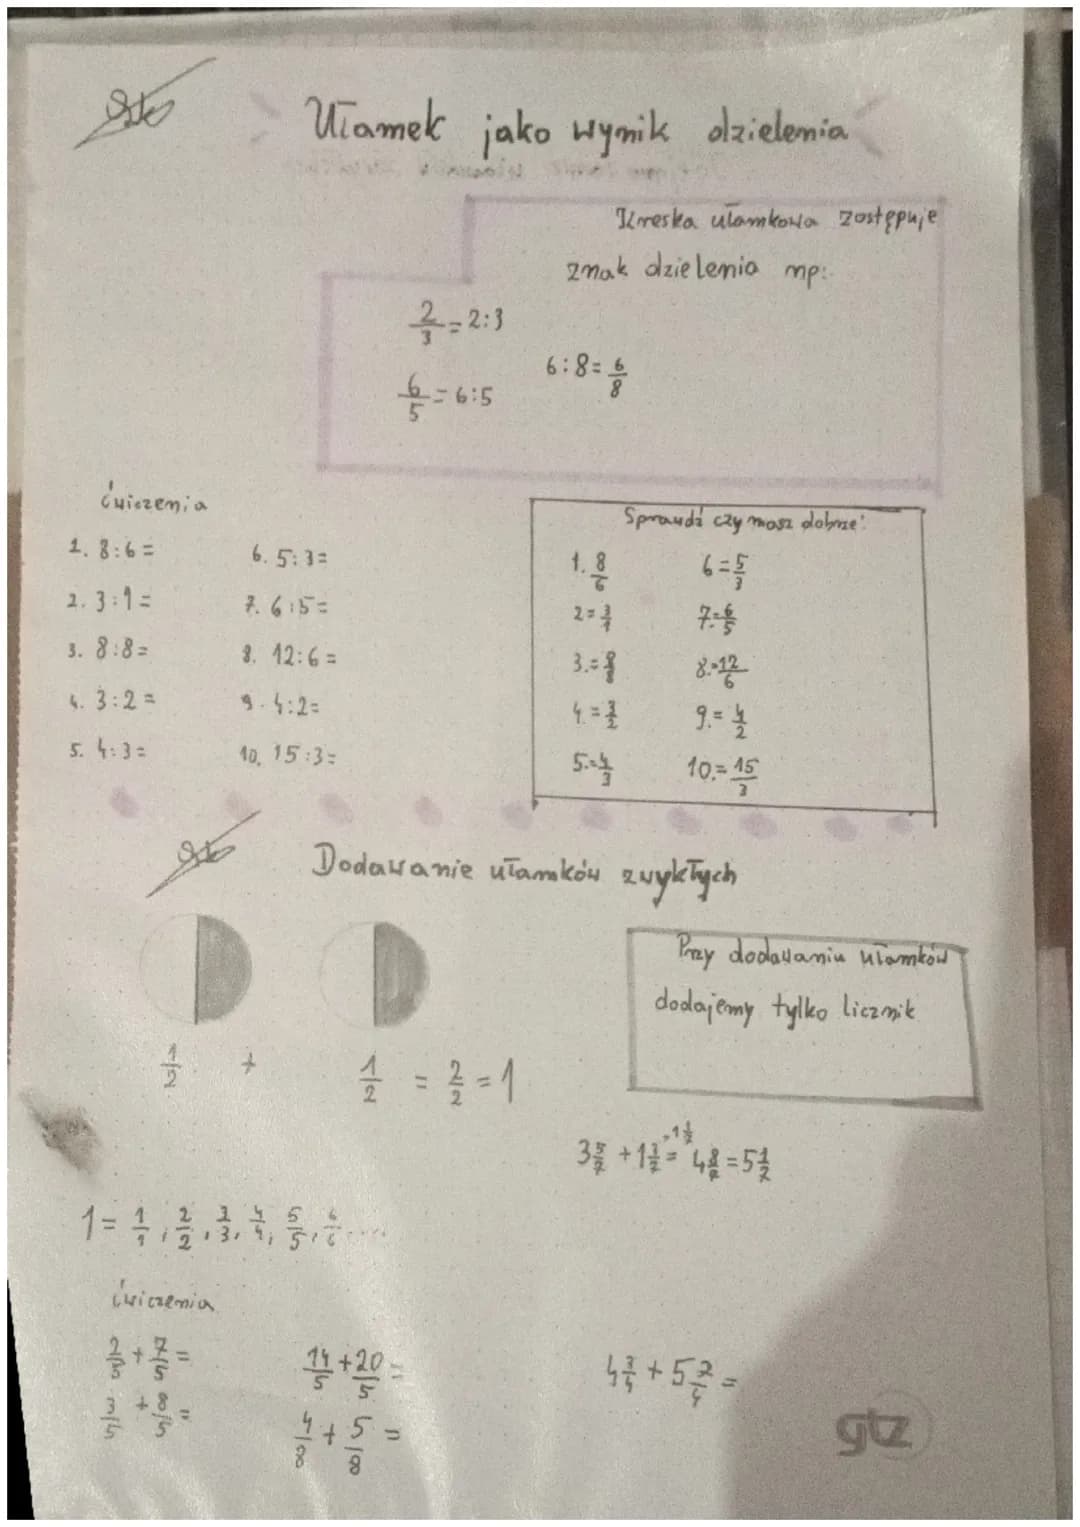 Ułamek jako wynik dzielenia
Kreska ułamkowa zostępuje
znak dzielenia np:
2/3 = 2:3
6:8 = 6/8
6/5 = 6:5
ćwiczenia
1. 8:6=
2. 3:1=
3. 8:8=
4. 3:2=
5. 4:3=
6. 5:3=
7. 6:5=
8. 12:6=
9. 4:2=
10. 15:3=
Sprawdź czy masz dobrze!
1. 8/6
2= 3/1
3.= 8/8
4.= 3/2
5.= 4/3
6= 5/3
7.= 6/5
8.= 12/6
9.= 4/2
10.= 15/3
Dodawanie ułamków zwykłych
Przy dodawaniu ułamków
dodajemy tylko licznik
1/2 + 1/2 = 2/2 = 1
3 5/7 + 1 3/7 = 4 8/7 = 5 1/7
=1 1/7
1= 1/1, 2/2, 3/3, 4/4, 5/5, 6/6....
ćwiczenia
2/5 + 7/5 =
3/5 + 8/5 =
14/5 + 20/5 =
4/8 + 5/8 =
4 3/4 + 5 2/4 =
gtz